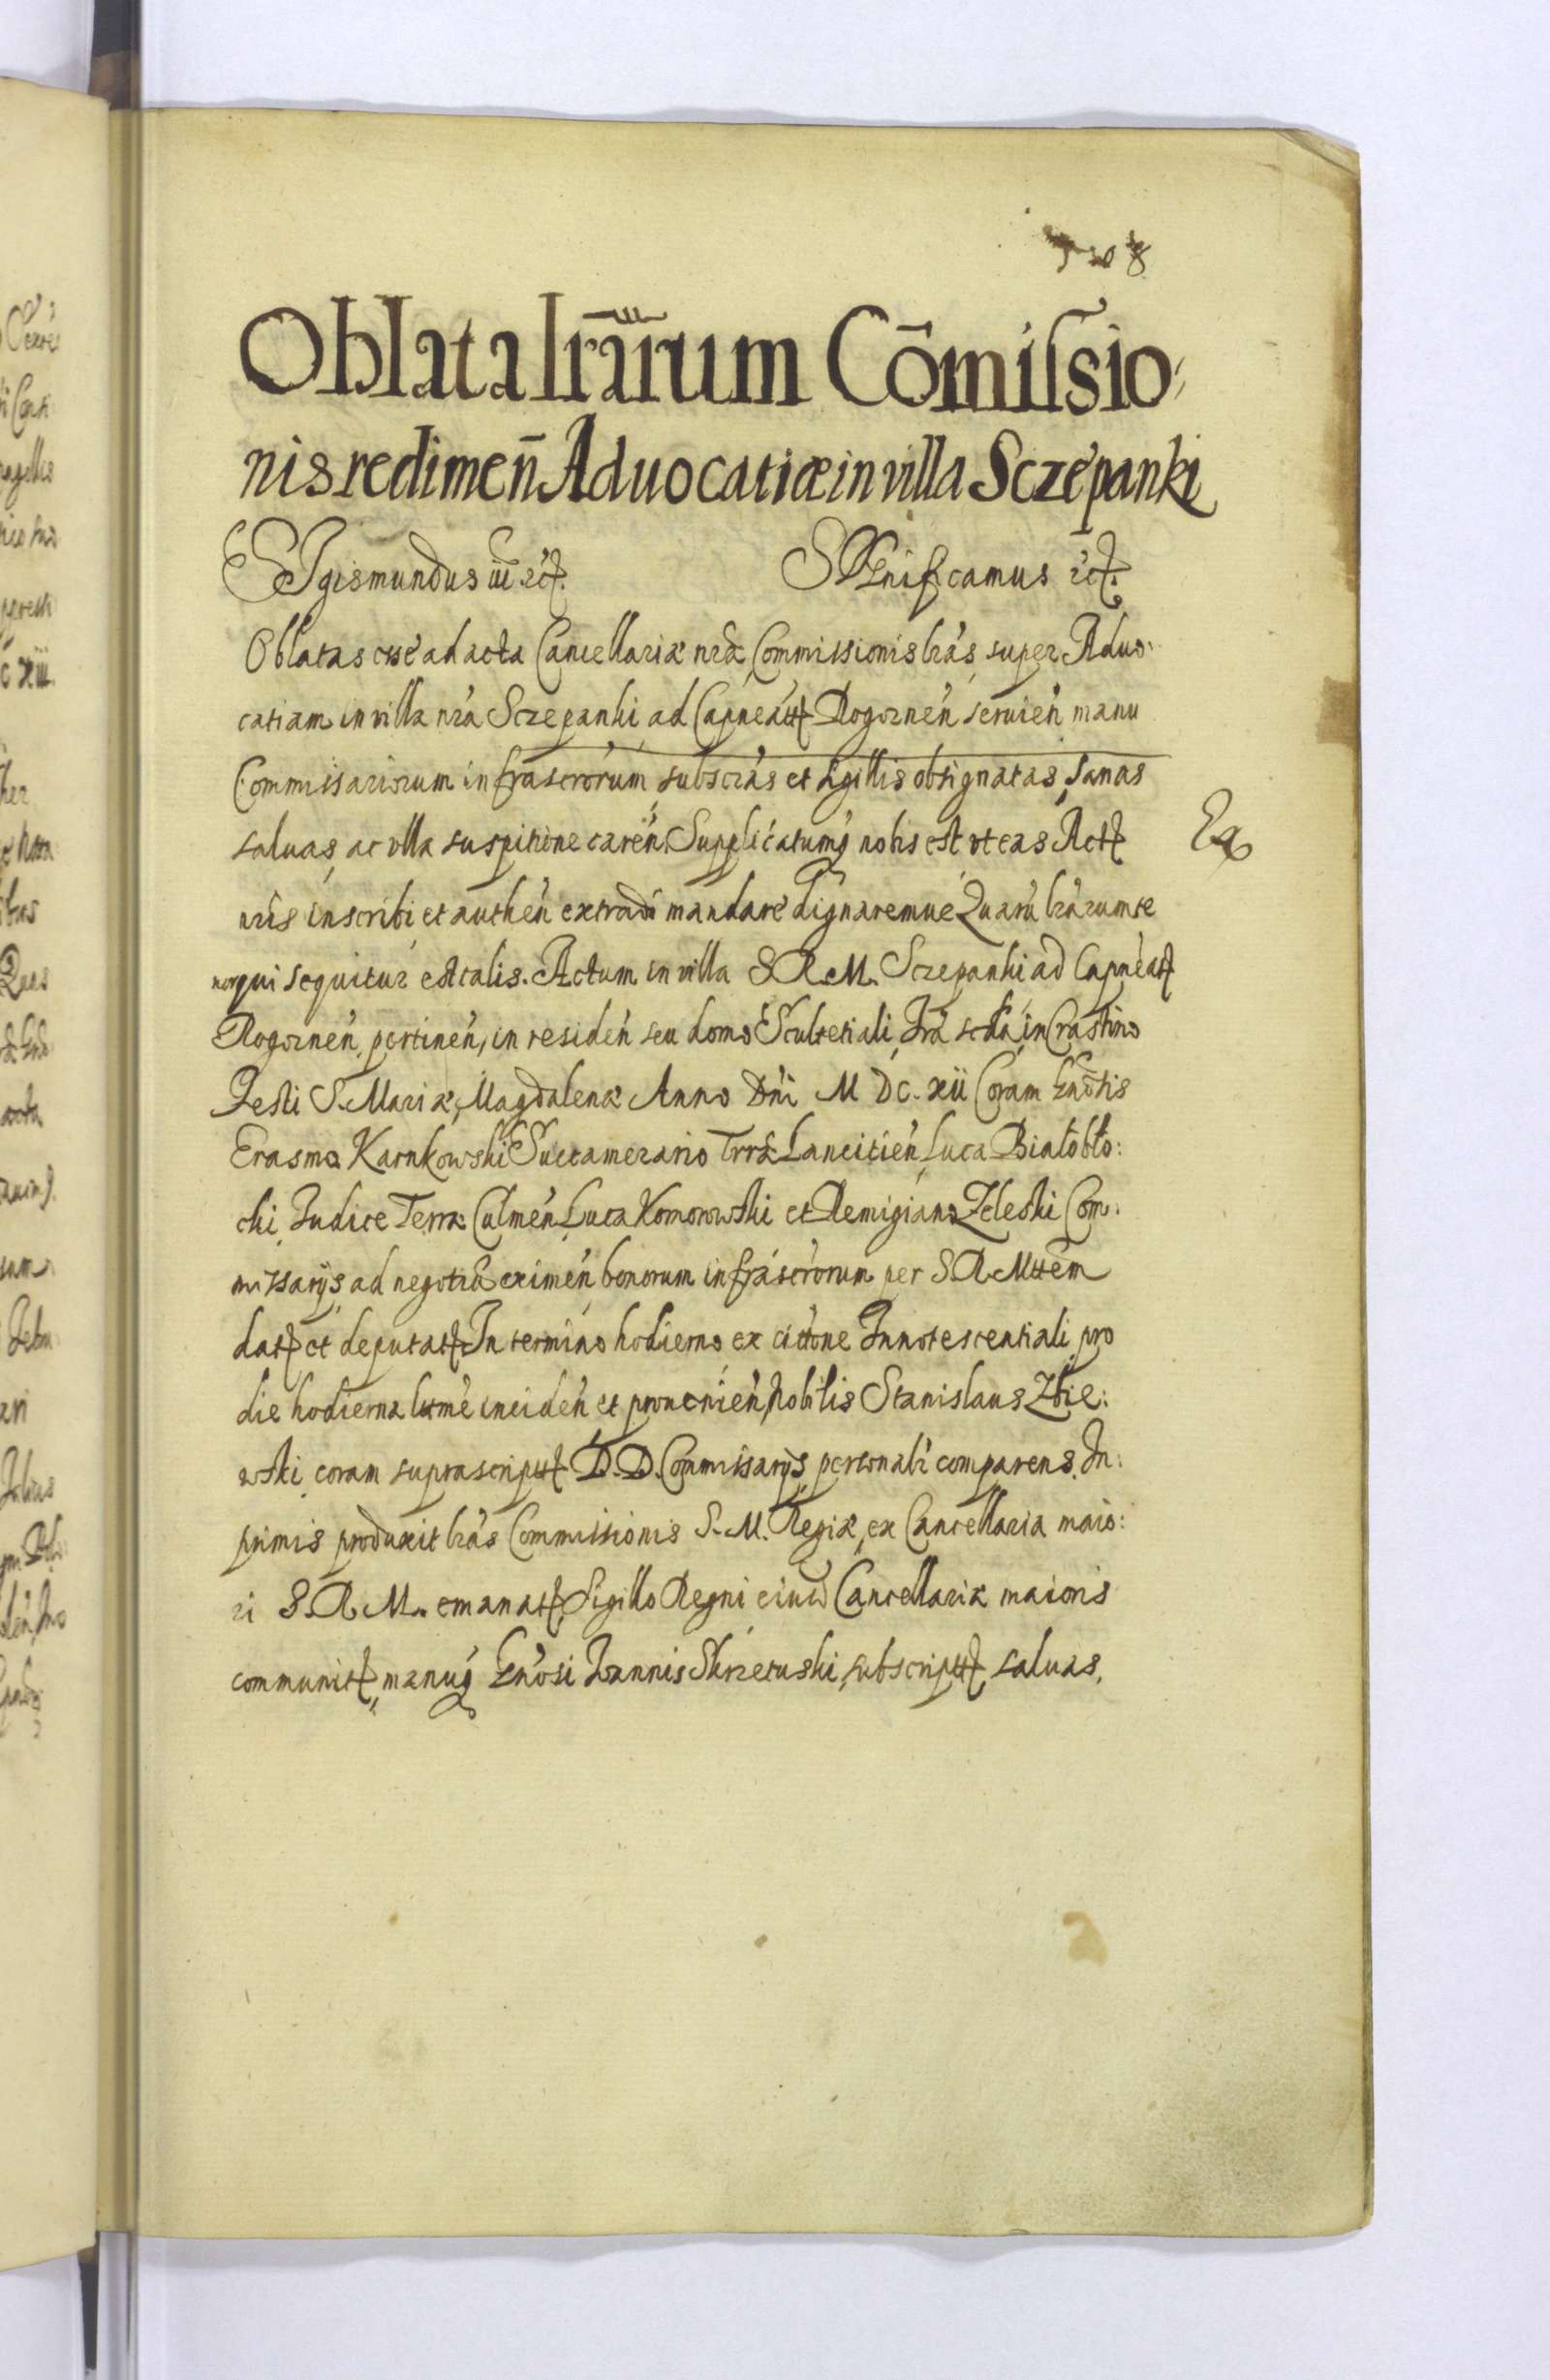 Oblata lrārum Cōmiſsio:
nis redimen̄ Aduocatiæ in villa Sczepanki
Sigismundus iii etc. Significamus etc.
Oblatas esse ad acta Cancellariæ nrǽ Commissionis lrás, super Aduo:
catiam in villa nrá Sczepanki ad Capneatt Rogoznen̄ seruien̄ manu
Commissariorum infrascrórum subscrás et sigillis obsignatas, sanas
saluas, ac vlla suspitione caren̄ Supplicatumq nobis est vt eas Act
nrîs inscribi et authen̄ extradi mandare dignaremur Quarū lrárum te
nor qui sequitur est talis. Actum in villa S. R. M. Sczepanki ad Capneatt
Rogoznen̄ pertinen̄, in residen̄ seu domo Scultetiali, fra scda, in Crastino
Festi S. Mariæ Magdalenæ Anno Dńi M DC. xii Coram Gnōsis
Erasmo Karnkowski Succamerario Trrǽ Lancicien̄ Luca Białobło:
cki Iudice Terræ Culmen̄ Luca Komorowski et Remigiano Zeleski Com:
missarijs ad negotiū eximen̄ bonorum infrascrórum per S R Mttem
dat et deputat In termino hodierno ex cittóne Innotescentiali pro
die hodierna lttmé inciden̄ et prouenien̄ Nobilis Stanislaus Zbie:
wski coram suprascriptt D. D. Commissarijs personalr comparens. In:
primis produxit lrás Commissionis S. M. Regiæ, ex Cancellaria maio:
ri S. R. M. emanatt, Sigillo Regni eiusd Cancellariæ maioris
communitt, manuq Gnósi Ioannis Skrzetuski, subscriptt saluas,